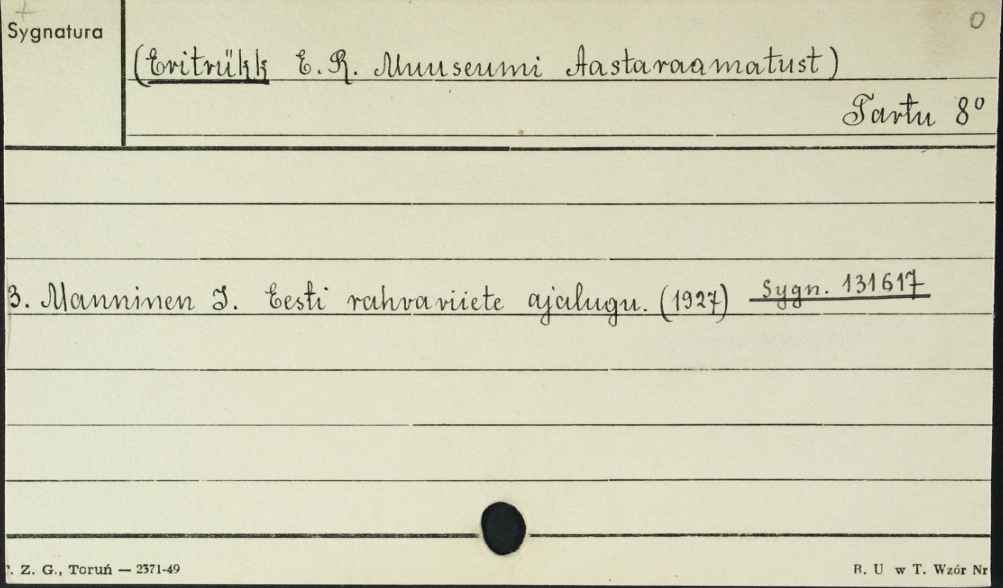 Sygnatura
O
(Eritrükk E. R. Muuseumi Aastaraamatust)
Tartu 8º
3. Manninen I. Eesti rahvariiete ajalugu. (1927) Sygn. 131617
Z. G., Toruń — 2371-49
B. U w T. Wzór Nr